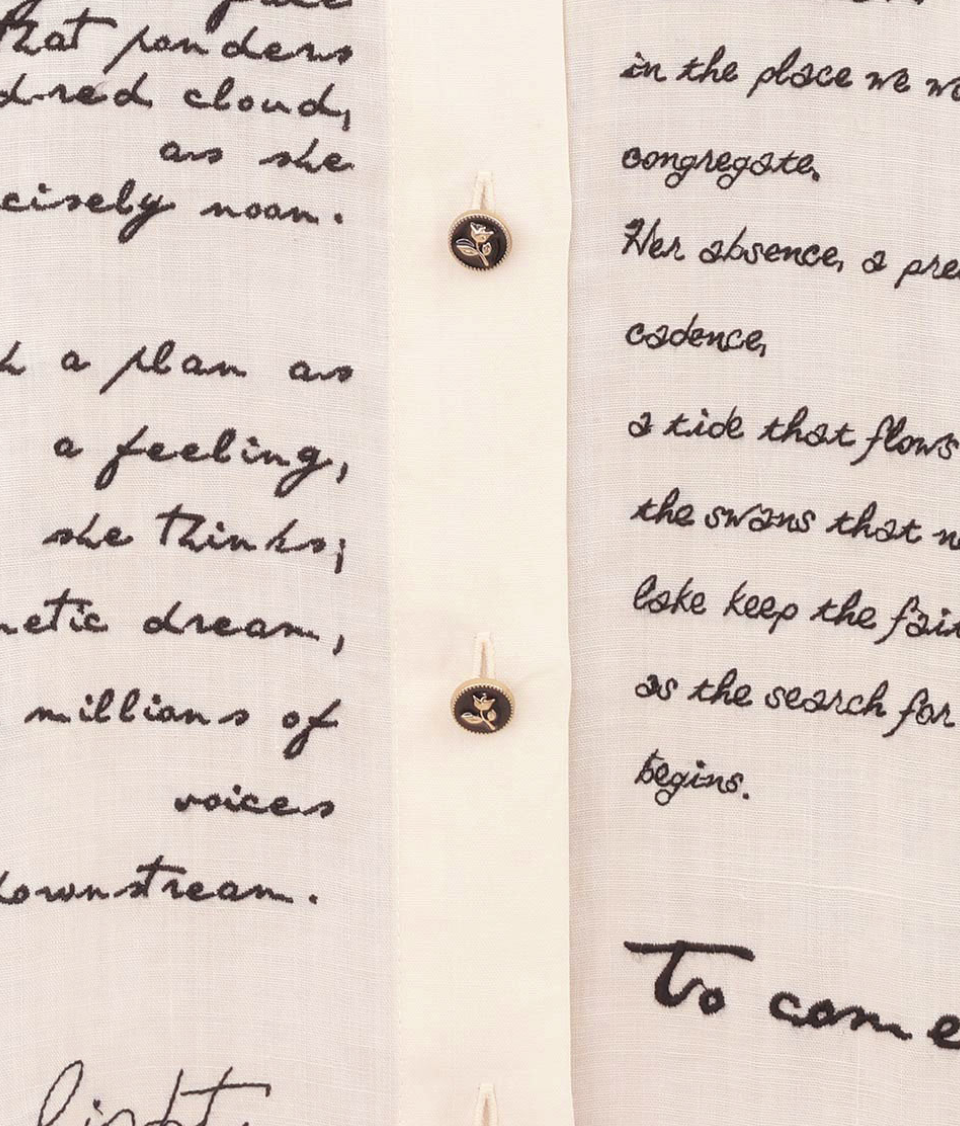 that ponders
cloud,
as she
noon.
a plan as
a feeling,
she thinks;
dream,
millions of
voices
downstream.
light
in the place we
congregate.
Her absence, a
cadence,
a tide that flows
the swans that
lake keep the
as the search for
begins.
To come